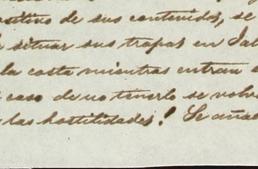 destino de sus contenidos, se
situar sus tropas en Jal
la costa mientras entran
caso de no tenerlo se volv
las hostilidades! Se añad